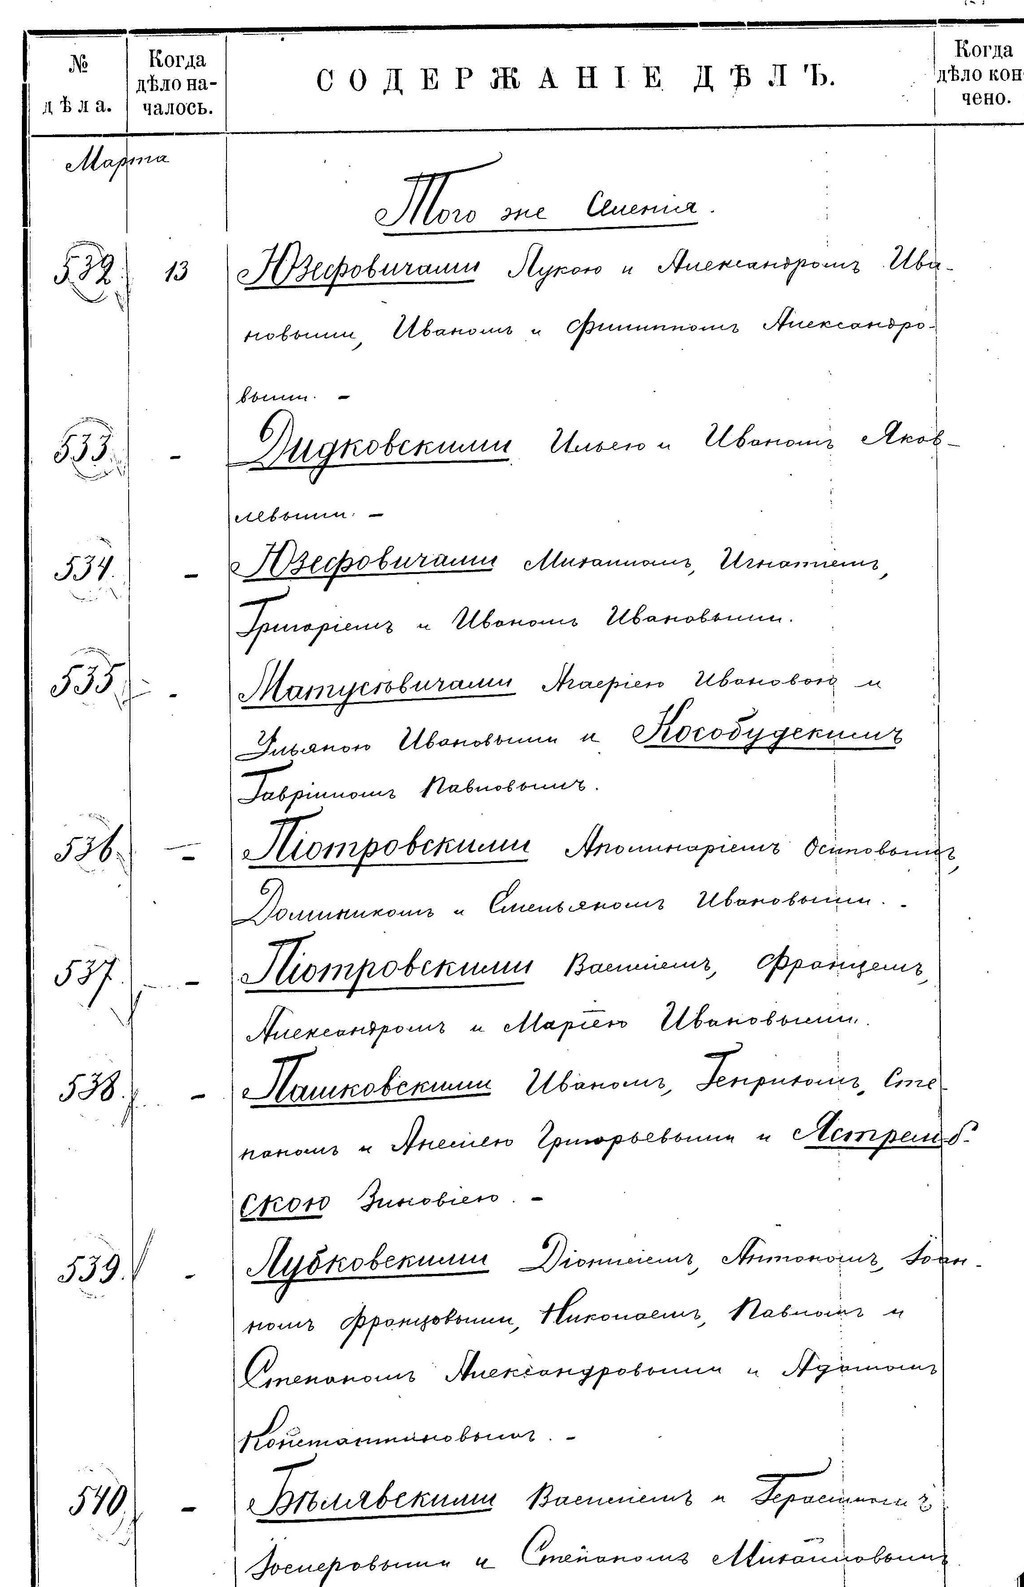 № дѣла.
Когда дѣло на-
чалось.
СОДЕРЖАНІЕ ДѢЛЪ.
Когда
дѣло кон
чено.
Марта
Того же Селенія.
532. 13 Юзефовичами Лукою и Александромъ Ива-
новыми, Иваномъ и Филиппомъ Александро-
выми. -
533. - Дидковскими Ильею и Иваномъ Яков-
левыми. -
534. - Юзефовичами Михаиломъ, Игнатіемъ,
Григоріемъ и Иваномъ Ивановыми.
535 - Матусовичами Ивановою и
Ульяною Ивановыми и Кособудскимъ
Гавріиломъ Павловымъ.
536. - Піотровскими Аполинаріемъ Осиповымъ,
Доминикомъ и Емельяномъ Ивановыми. -
537. - Піотровскими Василіемъ, Францемъ,
Александромъ и Маріею Ивановыми.
538. - Пашковскими Иваномъ, Генрихомъ, Сте
паномъ и Григорьевыми и Ястремб-
скою Зиновіею. -
539. - Лубковскими Діонисіемъ, Антономъ, Іоан-
номъ Францовыми, Николаемъ, Павломъ и
Степаномъ Александровыми и Адамомъ
Константиновымъ. -
540. - Бѣлявскими Василіемъ и Герасимомъ
Іосиеровыми и Степаномъ Михайловымъ